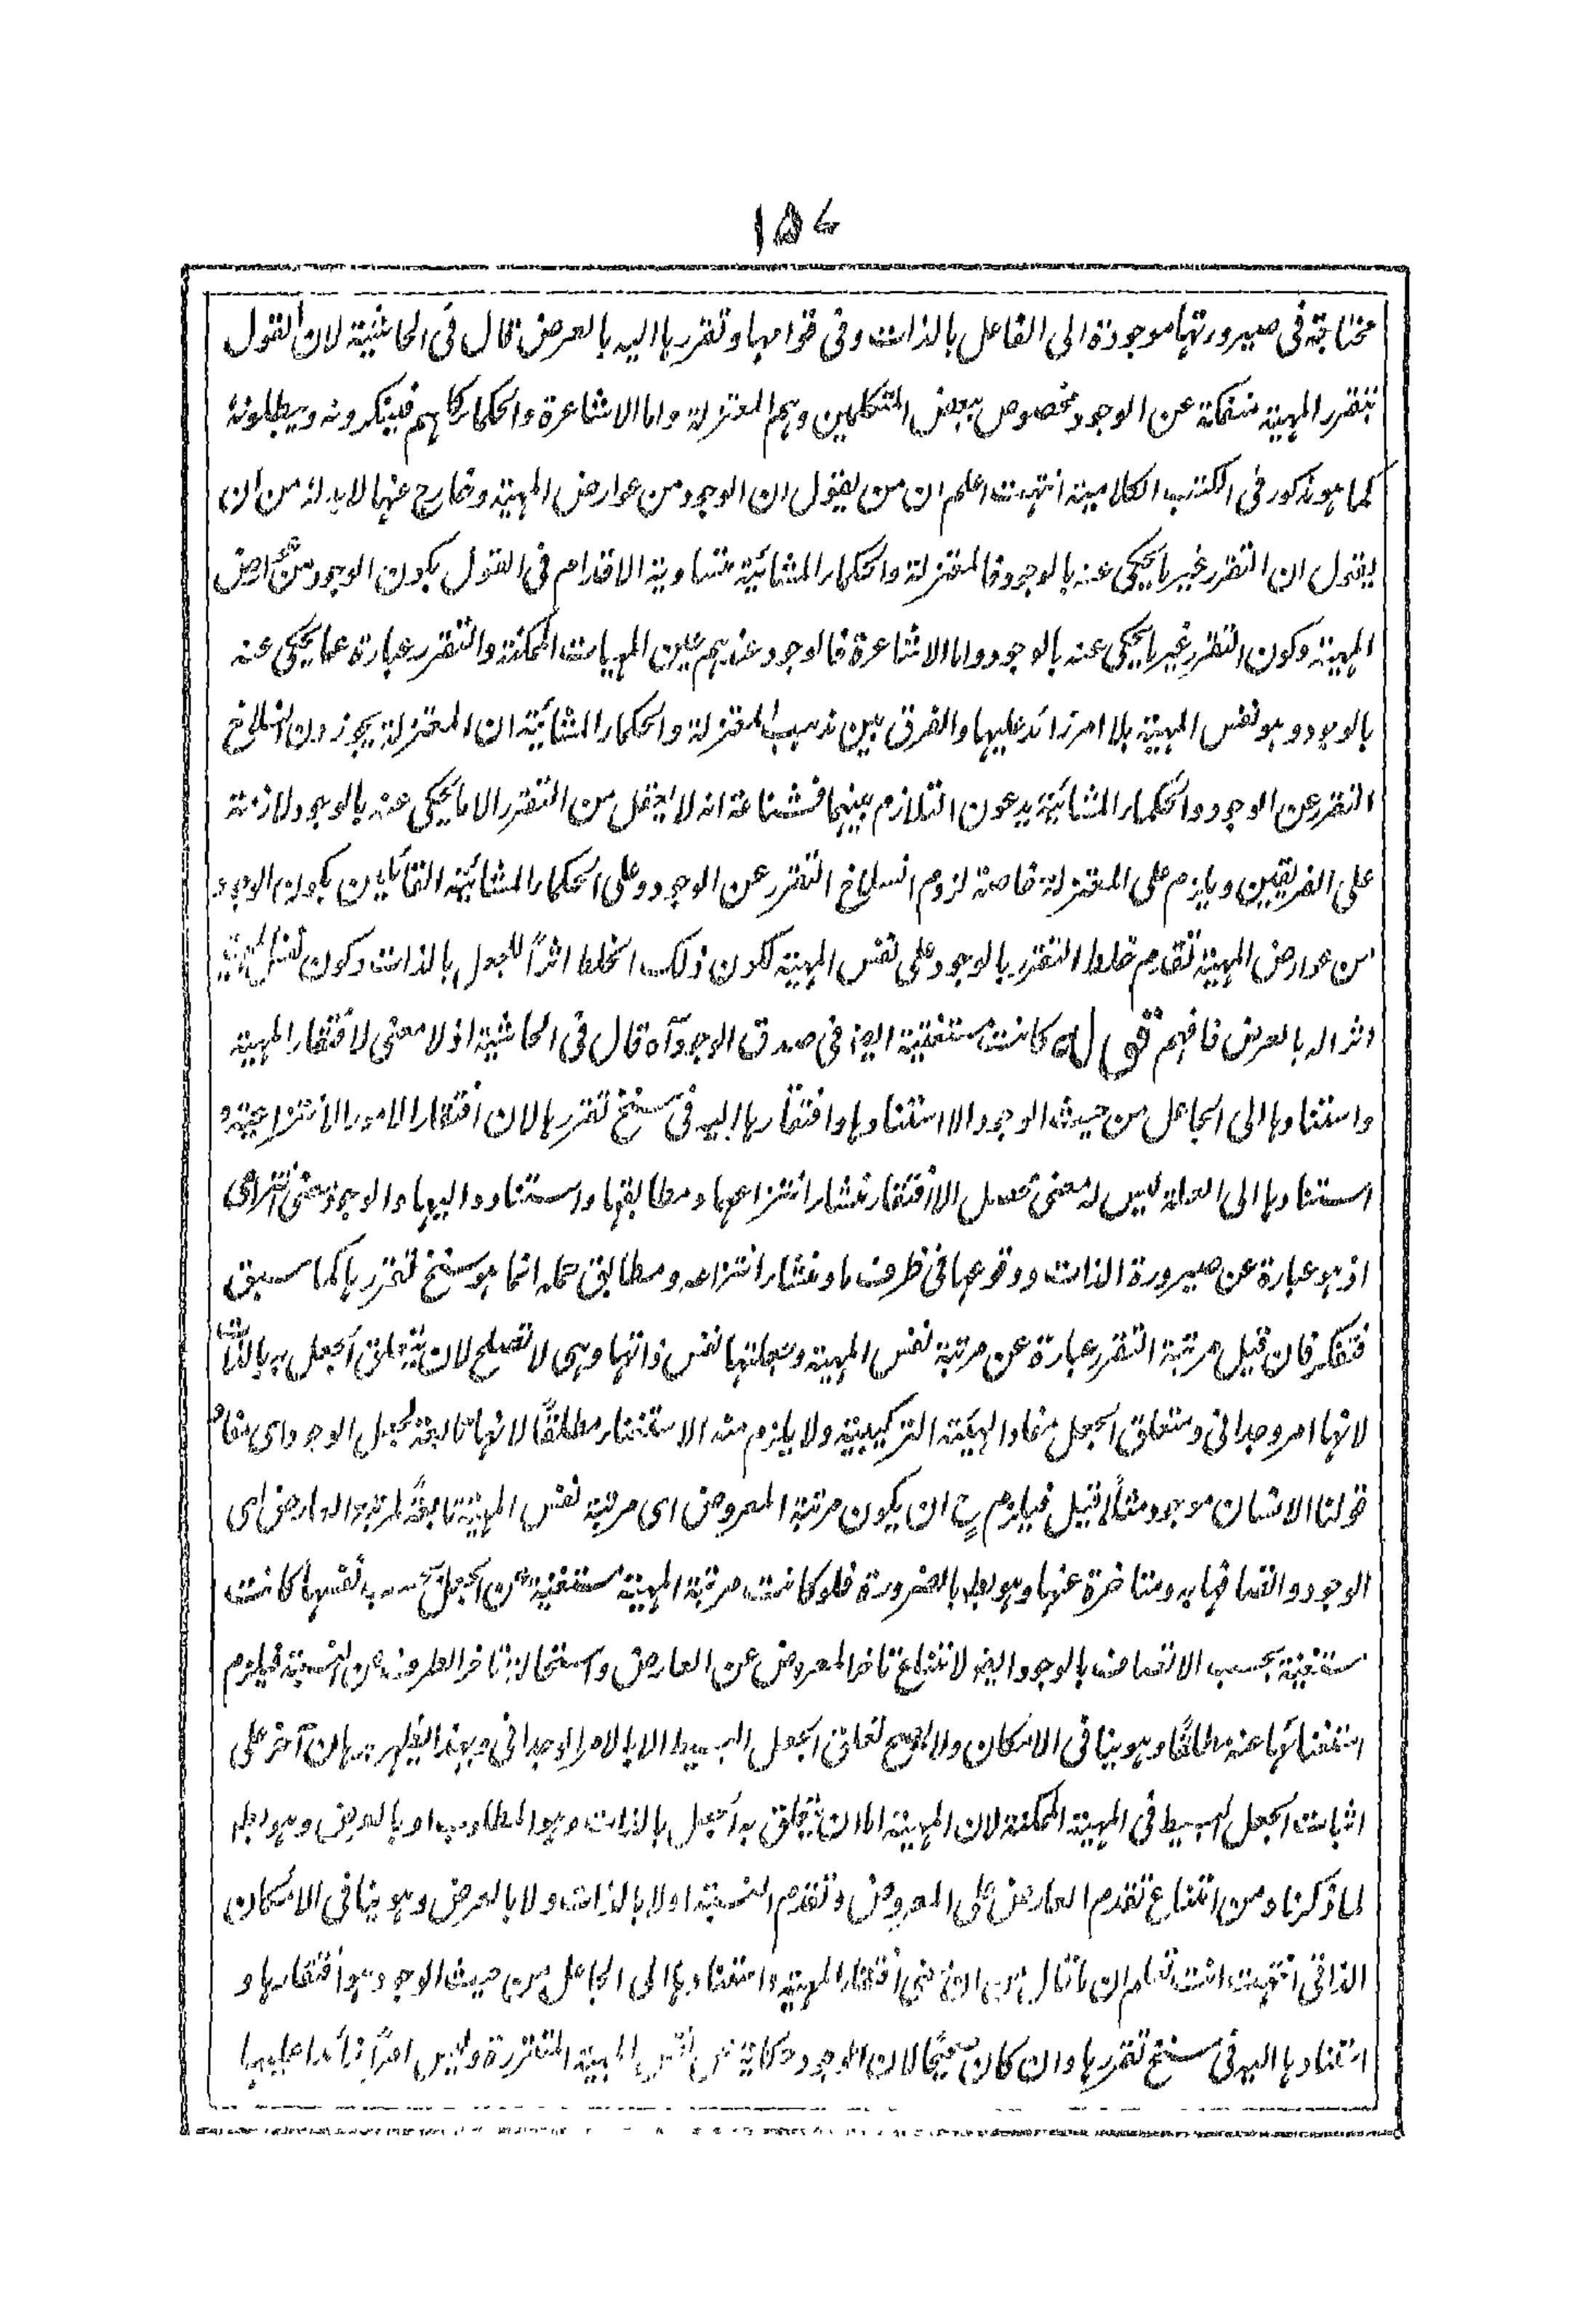 ١٥٧
محتاجة فى صيرورتها موجودة الى الفاعل بالذات وفى قوامها وتقررها اليه بالعرض قال فى الحاشية لان القول
بتقرر المهية منفكة عن الوجود مخصوص ببعض المتكلمين وهم المعتزلة واما الاشاعرة والحكماء كلهم فينكرونه ويبطلونه
كما هو مذكور فى الكتب الكلامية انتهت اعلم ان من يقول ان الوجود من عوارض المهية وخارج عنها لابد له من ان
يقول ان التقرر غير ما يحكى عنه بالوجود فالمعتزلة والحكماء المشائية متساوية الاقدام فى القول بكون الوجود من عوارض
المهية وكون التقرر غير ما يحكى عنه بالوجود واما الاشاعرة فالوجود عندهم عين المهيات الممكنة والتقرر عبارة عما يحكى عنه
بالوجود وهو نفس المهية بلا امر زائد عليها والفرق بين مذهب المعتزلة والحكماء المشائية ان المعتزلة يجوزون انسلاخ
التقرر عن الوجود والحكماء المشائية يدعون التلازم بينهما فشناعة انه لا يعقل من التقرر الا ما يحكى عنه بالوجود لازمة
على الفريقين ويلزم على المعتزلة خاصة لزوم انسلاخ التقرر عن الوجود وعلى الحكماء المشائية القائلين بكون الوجود
من عوارض المهية تقدم خلط التقرر بالوجود على نفس المهية لكون ذلك الخلط اثراً للجعل بالذات وكون نفس المهية
اثرا له بالعرض فافهم قوله كانت مستغنية ايضا فى صدق الوجود آه قال فى الحاشية اذ لا معنى لافتقار المهية
واستنادها الى الجاعل من حيث الوجود الا استنادها وافتقارها اليه فى سنخ تقررها لان افتقار الامور الانتزاعية و
استنادها الى العلة ليس له معنى محصل الا افتقار منشأ انتزاعها ومطابقها واستناده اليها والوجود معنى انتزاعى
اذ هو عبارة عن صيرورة الذات ووقوعها فى ظرف ما ومنشأ انتزاعه ومطابق حمله انما هو سنخ تقررها كما سبق
فتفكر فان قيل مرتبة التقرر عبارة عن مرتبة نفس المهية وجعلتها نفس ذاتها وهى لا تصلح لان يتعلق الجعل به بالذات
لانها امر وحدانى ومتعلق الجعل مفاد الهيئة التركيبية ولا يلزم منه الاستغناء مطلقاً لانها تابعة لجعل الوجود اى مفاد
قولنا الانسان موجود مثلاً قيل فيلزم ح ان يكون مرتبة المعروض اى مرتبة نفس المهية تابعةً لمرتبة العارض اى
الوجود واتصافها به ومتاخرة عنها وهو بط بالضرورة فلو كانت مرتبة المهية مستغنية عن الجعل بحسب نفسها كانت
مستغنية بحسب الاتصاف بالوجود ايضا لامتناع تاخر المعروض عن العارض واستحالة تاخر الطرف عن النسبة فيلزم
استغنائها عنه مطلقاً وهو ينافى الامكان ولا يصح تعلق الجعل البسيط الا بالامر الوحدانى وبهذا يظهر برهان آخر على
اثبات الجعل البسيط فى المهية الممكنة لان المهية اما ان يتعلق به الجعل بالذات وهو المطلوب او بالعرض وهو بط
لما ذكرنا من امتناع تقدم العارض على المعروض وتقدم النسبة اولا بالذات ولا بالعرض وهو ينافى الامكان
الذاتى انتهت انت تعلم ان ما قال من ان معنى افتقار المهية واستنادها الى الجاعل من حيث الوجود هو افتقارها و
استنادها اليه فى سنخ تقررها وان كان صحيحاً لان الوجود حكاية عن نفس المهية المتقررة وليس امراً زائدا عليها